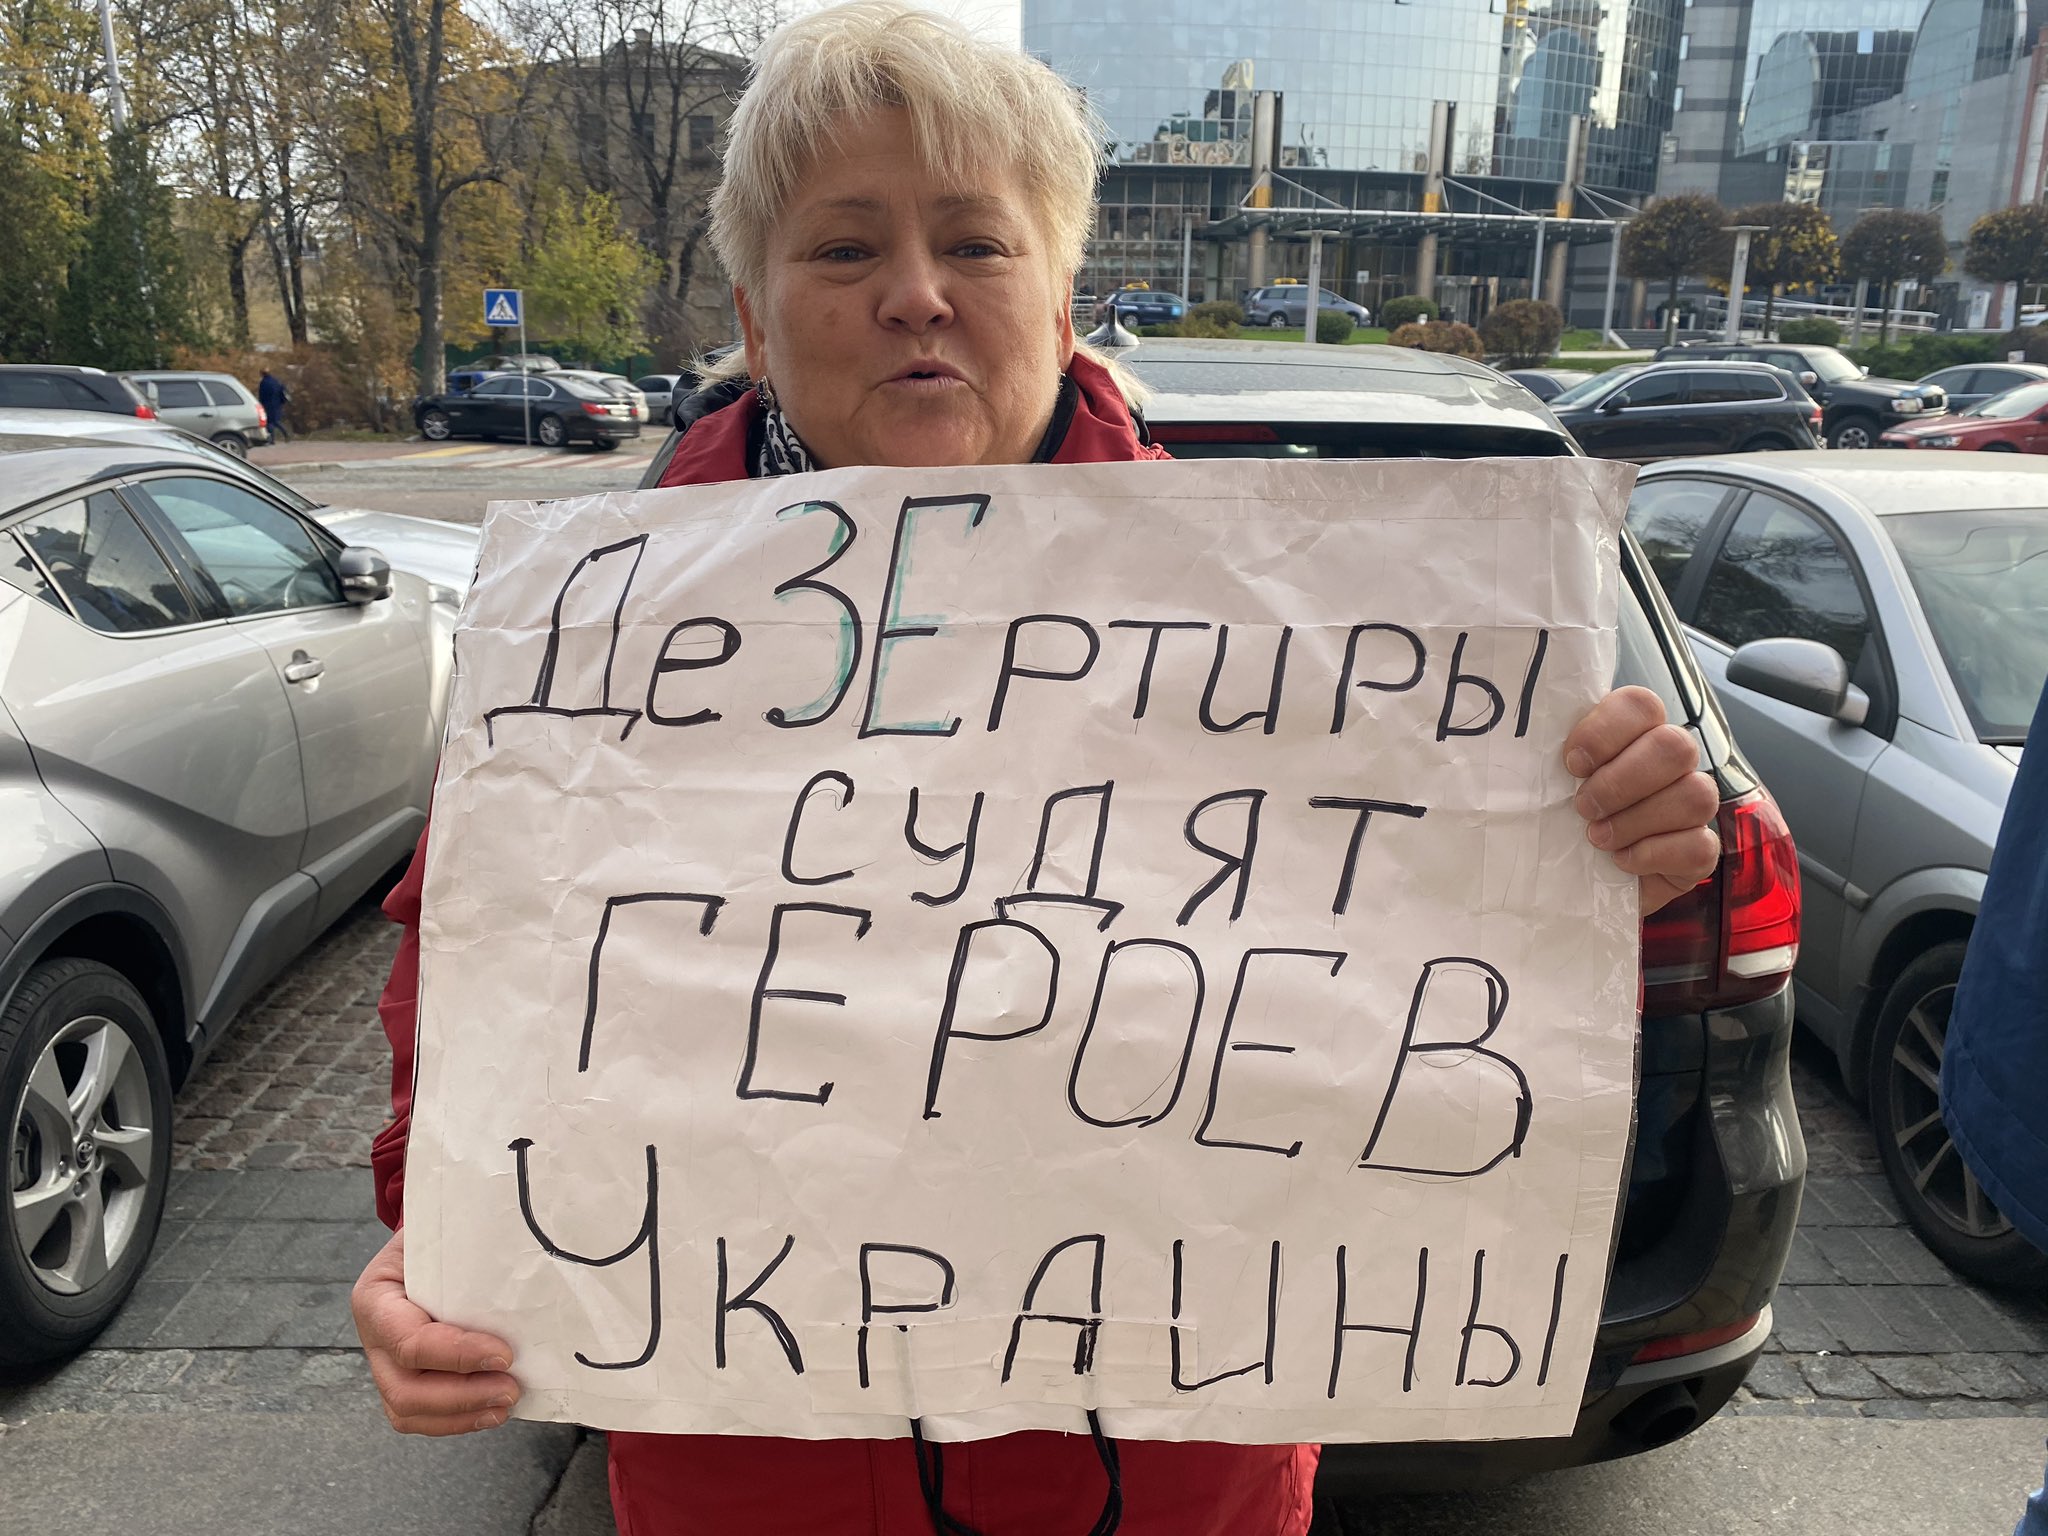 ДеЗЕртиры
судят
ГЕРОЕВ
Украины